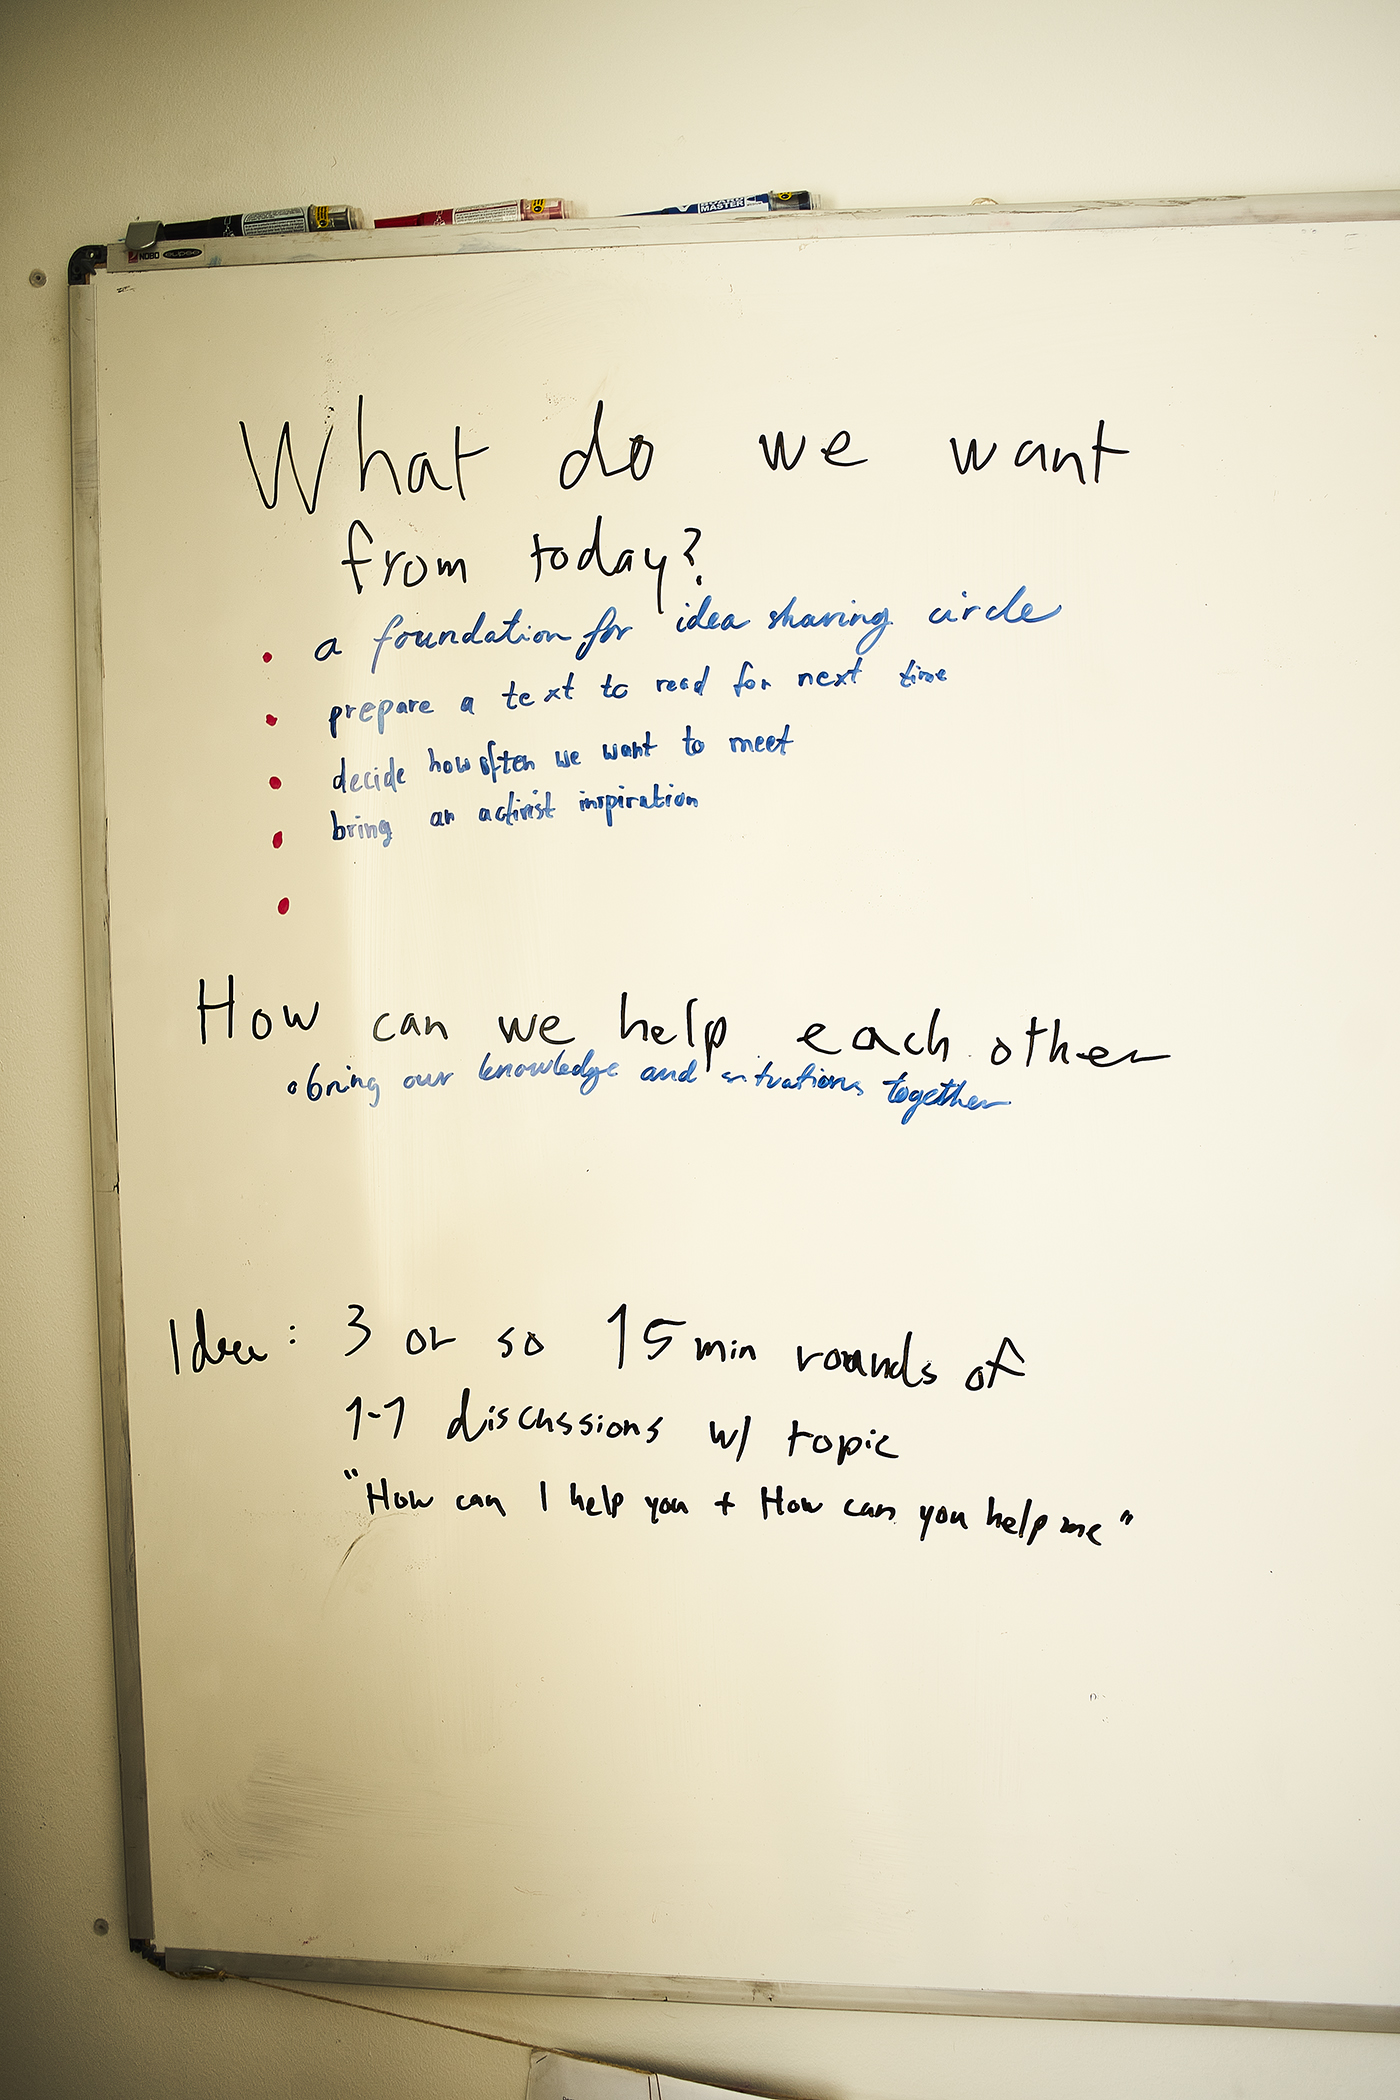 MASTER
NOBO
What do we want
from today?
• a foundation for idea sharing circle
• prepare a text to read for next time
• decide how often we want to meet
• bring an activist inspiration
•
How can we help each other
• bring our knowledge and situations together
Idea: 3 or so 15 min rounds of
1-1 discussions w/ topic
"How can I help you + How can you help me"